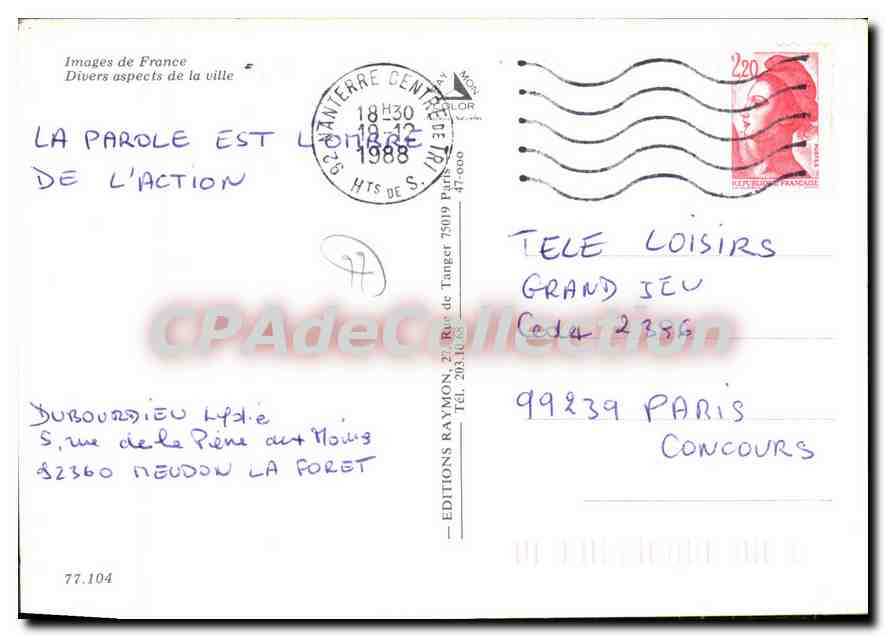 Images de France
Divers aspects de la ville
LA PAROLE EST L'OMBRE
DE L'ACTION
92 NANTERRE CENTRE DE TRI
18H30
19-12
1988
HTS DE S.
RAYMON
COLOR
2,20
POSTES
REPUBLIQUE FRANÇAISE
77
EDITIONS RAYMON, 27, Rue de Tanger 75019 Paris
Tél. 203.10.68
47-000
TELE LOISIRS
GRAND JEU
2386
99239 PARIS
CONCOURS
CPAdeCollection
DUBOURDIEU Lydie
5, rue de la Pierre aux Moins
92360 MEUDON LA FORET
77.104